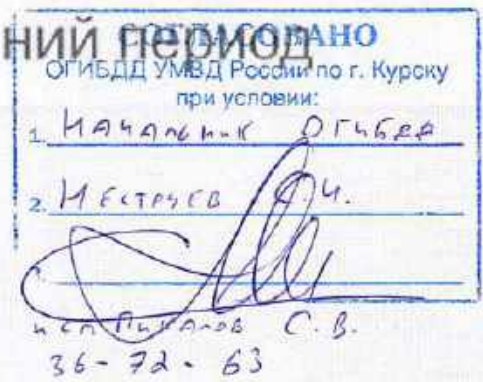 ний период
СОГЛАСОВАНО
ОГИБДД УМВД России по г. Курску
при условии:
1. Начальник ОГИБДД
2. И.
исп С. В.
36-72-63